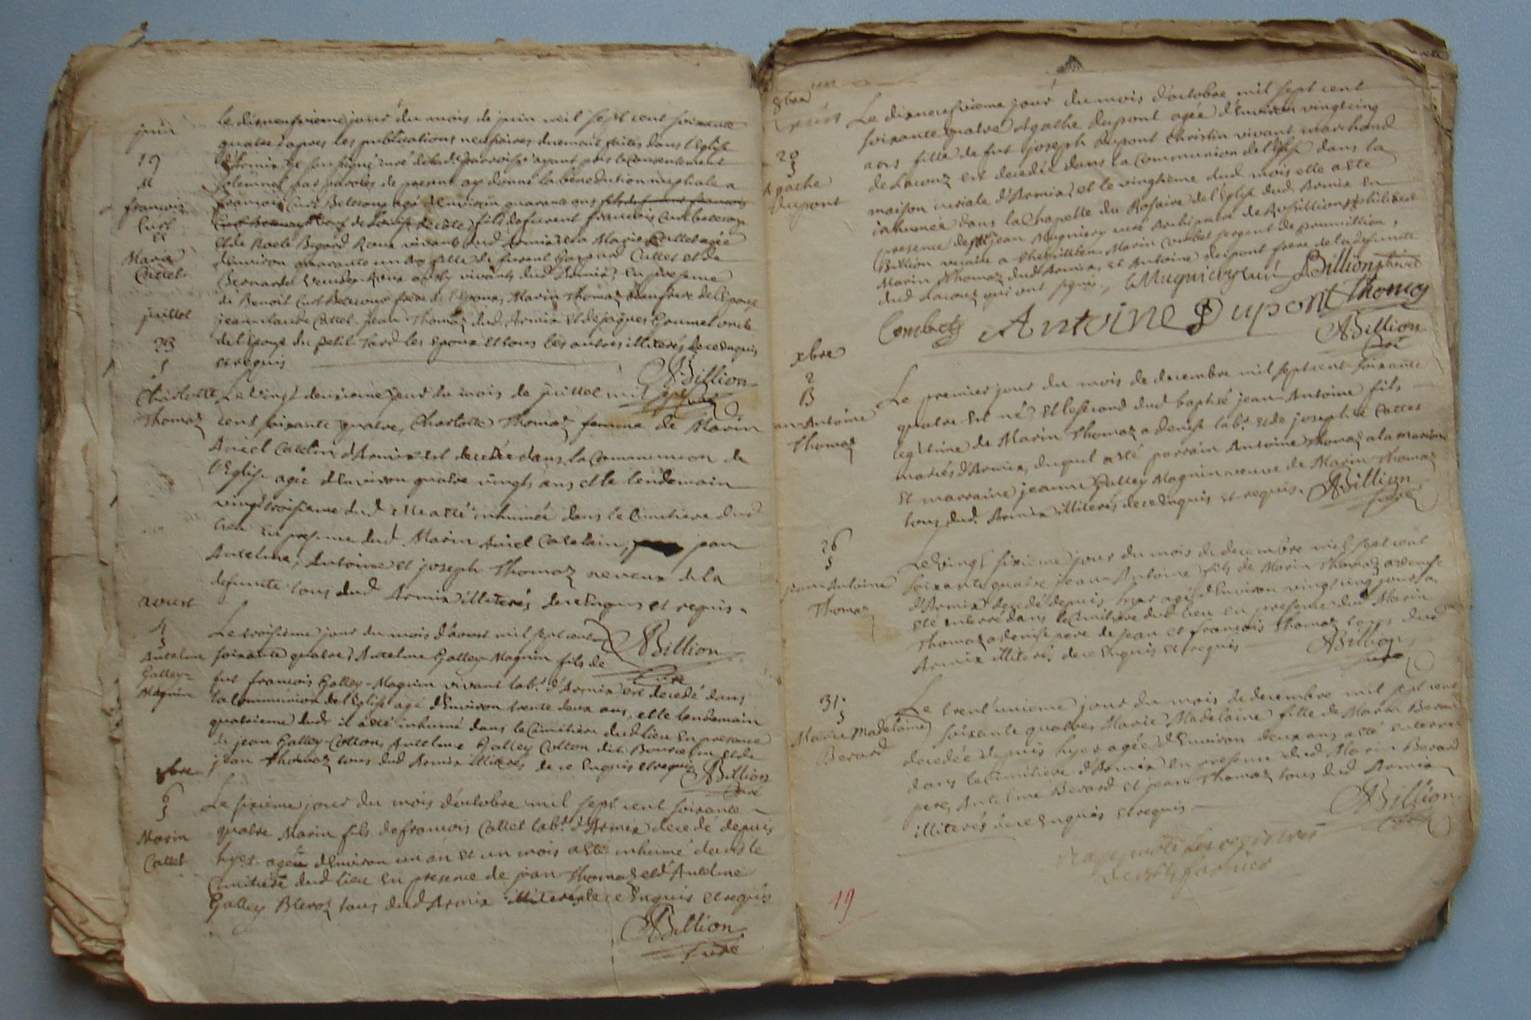 juin
19
M
françois
Curt
et
Marie
Cattet
Le dixneufvieme jour du mois de juin mil sept cent soixante
quatre apres les publications necessaires duement faites dans l'Eglise
solemnel par paroles de present ay donné la benediction nuptiale a
françois Curt Belleconr agé d'environ quarante ans
fils de furent francois Curt belleconr
d'environ quarante un ans fille de furent Gaspard Cattet et de
vivants dud Armix En presence
de Benoit Curt Belleconr frere de l'Epoux, Marin Thomaz beaufrere de l'Epouse
jean claude Cattet jean Thomaz dud Armix et de jaques Gormet oncle
de l'Epouse du petit les Epoux et tous les autres illiterés de ce Enquis
et requis
ABillion
Curé
juillet
23
§
Charlotte
Thomaz
Le vingt deuxieme jour du mois de juillet mil sept
cent soixante quatre, Charlotte Thomaz femme de Marin
d'Armix est decedée dans la Communion de
l'Eglise agée d'Environ quatre vingts ans et le lendemain
vingt troisieme dud elle a eté inhumée dans le Cimetiere dud
lieu En presence dud Marin jean
Antelme, Antoine et joseph Thomaz neveux de la
defunte tous dud Armix illiterés de ce Enquis et requis.
ABillion
Curé
aoust
4
§
Antelme
Galley-
Maquin
Le troisieme jour du mois d'aoust mil sept cent
soixante quatre, Antelme Galley-Maquin fils de
fut francois Galley-Maquin vivant lab.r d'Armix est decedé dans
la Communion de l'Eglise agé d'Environ trente deux ans, et le lendemain
quatrieme dud il a eté inhumé dans le Cimetiere dud lieu En presence
de jean Galley-Cotton, Antelme Galley Cotton dit et de
jean Thomaz tous dud Armix illiterés de ce Enquis et requis
ABillion
Curé
8bre
6
§
Marin
Cattet
Le sixieme jour du mois d'octobre mil sept cent soixante
quatre Marin fils de francois Cattet lab.r d'Armix decedé depuis
hyer agée d'Environ un an et un mois a eté inhumé dans le
Cimitiere dud lieu En presence de jean Thomaz et d'Antelme
Galley Bleroz tous dud Armix illiterés de ce Enquis et requis
ABillion
Curé
8bre
20
§
Agathe
Dupont
Le dixneufvieme jour du mois d'octobre mil sept cent
soixante quatre Agathe Dupont agée d'Environ vingtcinq
ans fille de fut joseph Dupont Christin vivant marchand
de Lacouz est decedée dans la Communion de l'Eglise dans la
maison curiale d'Armix, et le vingtieme dud mois elle a eté
inhumée dans la Chapelle du Rosaire de l'Eglise dud Armix En
presence de M.re jean Mugniery curé Archipretre de Rossillion, Philibert
Billion vicaire a Marin Combet sergent de
Marin Thomaz dud Armix, et Antoine Dupont frere de la defunte
dud Lacouz qui ont signés,
Mugniery curé Billion
Combet Antoine Dupont Thomaz
ABillion
Curé
xbre
2
B
Antoine
Thomaz
Le premier jour du mois de decembre mil sept cent soixante
quatre est né et le second dud baptisé jean-Antoine fils
legitime de Marin Thomaz a denise lab.r et de josephte Cattet
mariés d'Armix, duquel a eté parrain Antoine Thomaz
et marraine jeanne Galley Maquin veuve de Marin Thomaz
tous dud. Armix illiterés de ce enquis et requis.
ABillion
Curé
26
§
jean Antoine
Thomaz
Le vingt sixieme jour du mois de decembre mil sept cent
soixante quatre jean-Antoine fils de Marin Thomaz a denise
d'Armix decedé depuis hyer agé d'Environ vingt cinq jours a
eté enterré dans le Cimitiere dud lieu en presence dud Marin
Thomaz a denise pere de jean et francois Thomaz tous dud
Armix illiterés de ce Enquis et requis
ABillion
Curé
31.
§
Marie Madelaine
Berard
Le trent'unieme jour du mois de decembre mil sept cent
soixante quatre, Marie Madelaine fille de Marin Berard
decedée depuis hyer agée d'Environ deux ans a eté enterrée
dans le Cimitiere d'Armix en presence dud Marin Berard
pere, Antelme Berard et jean Thomaz tous dud Armix
illiterés de ce enquis et requis
ABillion
Curé
19